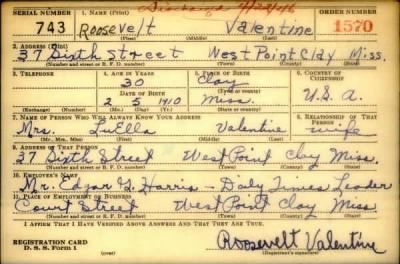 Discharged
SERIAL NUMBER 1. NAME (Print) ORDER NUMBER
743 Roosevelt Valentine 1570
(First) (Middle) (Last)
2. ADDRESS (Print)
37 Sixth Street West Point Clay Miss.
(Number and street or R. F. D. number) (Town) (County) (State)
3. TELEPHONE 4. AGE IN YEARS 5. PLACE OF BIRTH 6. COUNTRY OF CITIZENSHIP
30 Clay
DATE OF BIRTH (Town or county)
2 5 1910 Miss. U.S.A.
(Exchange) (Number) (Mo.) (Day) (Yr.) (State or country)
7. NAME OF PERSON WHO WILL ALWAYS KNOW YOUR ADDRESS 8. RELATIONSHIP OF THAT PERSON
Mrs. LuElla Valentine wife
(Mr., Mrs., Miss) (First) (Middle) (Last)
9. ADDRESS OF THAT PERSON
37 Sixth Street West Point Clay Miss.
(Number and street or R. F. D. number) (Town) (County) (State)
10. EMPLOYER'S NAME
Mr. Edgar G. Harris - Daly Times Leader
11. PLACE OF EMPLOYMENT OR BUSINESS
Court Street West Point Clay Miss
(Number and street or R. F. D. number) (Town) (County) (State)
I AFFIRM THAT I HAVE VERIFIED ABOVE ANSWERS AND THAT THEY ARE TRUE.
REGISTRATION CARD
D. S. S. Form 1
Roosevelt Valentine
(Registrant's signature)